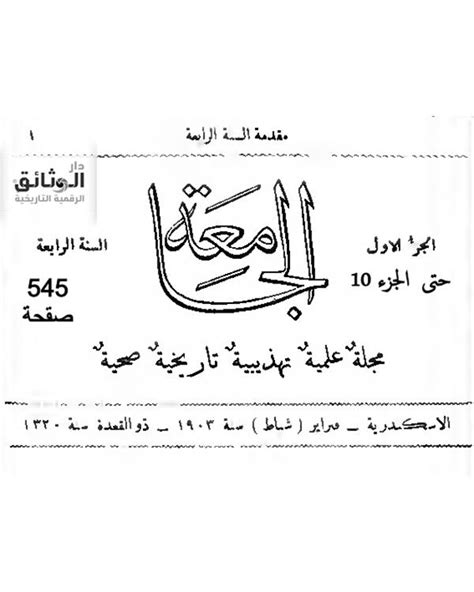 مقدمة السنة الرابعة ١
دار
الوثائق
الرقمية التاريخية
الجامعة
الجزءُ الاول
حتى الجزء 10
السنة الرابعة
545
صفحة
مجلةٌ علميةٌ تهذيبيةٌ تاريخيةٌ صحيةٌ
الاسكندرية – فبراير ( شباط ) سنة ١٩٠٣ – ذو القعدة سنة ١٣٢٠